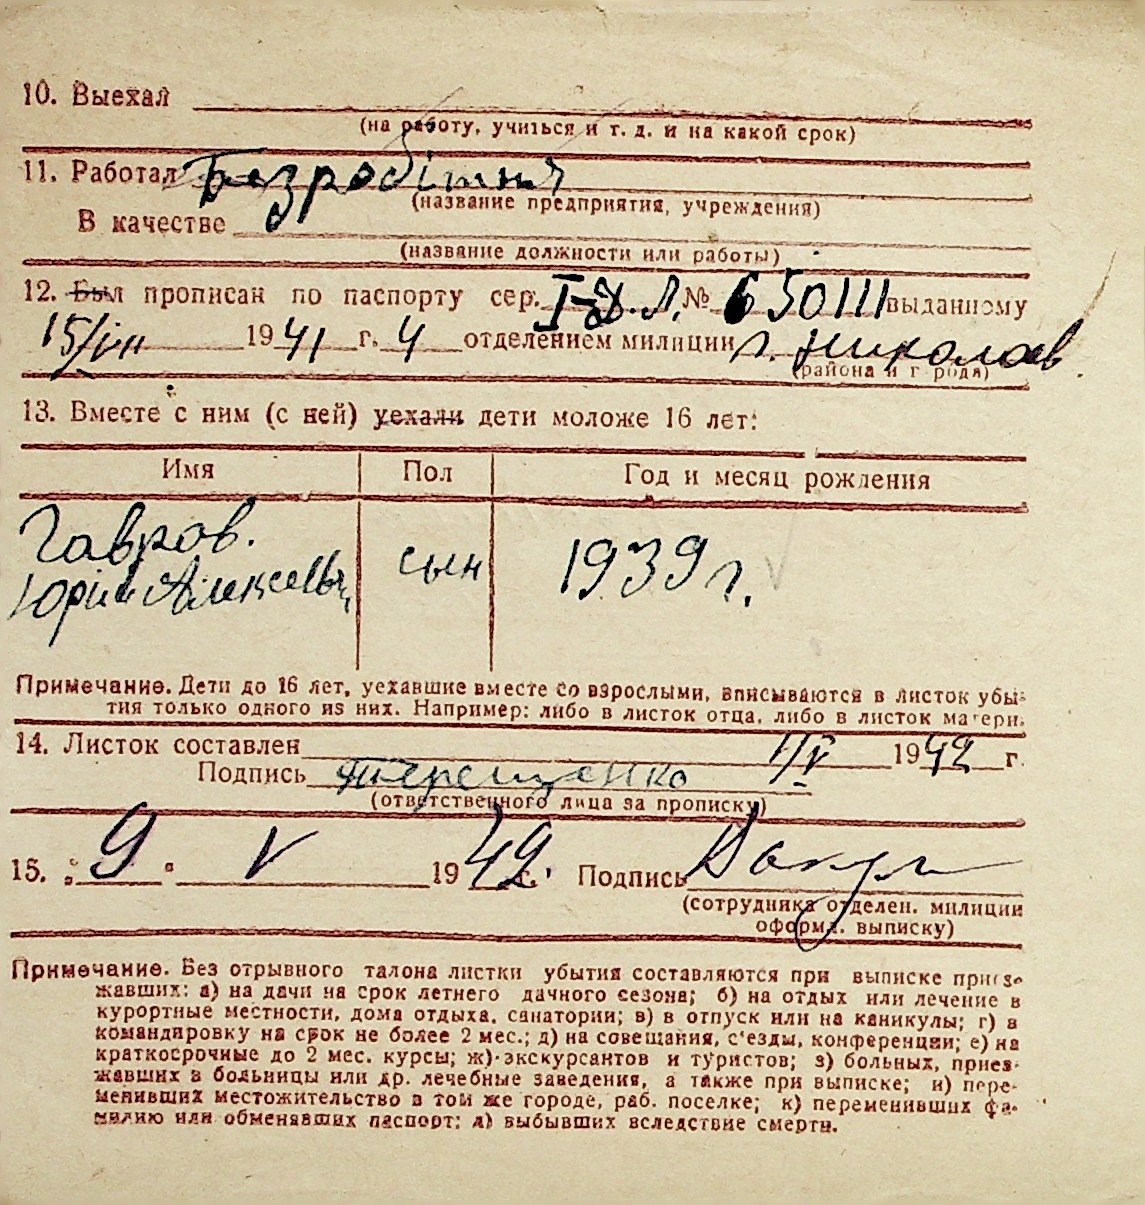 10. Выехал
(на работу, учиться и т. д. и на какой срок)
11. Работал Безробітній
(название предприятия, учреждения)
В качестве
(название должности или работы)
12. Был прописан по паспорту сер. № 650111 выданному
15/VII 1941 г. 4 отделением милиции г. Николаев
(района и города)
13. Вместе с ним (с ней) уехали дети моложе 16 лет:
Имя Пол Год и месяц рождения
Гавров.
Юрий Алексеевич сын 1939 г.
Примечание. Дети до 16 лет, уехавшие вместе со взрослыми, вписываются в листок убы-
тия только одного из них. Например: либо в листок отца, либо в листок матери.
14. Листок составлен 1/V 1942 г.
Подпись Терещенко
(ответственного лица за прописку)
15. „9" V 1942 г. Подпись
(сотрудника отделен. милиции
оформл. выписку)
Примечание. Без отрывного талона листки убытия составляются при выписке приез-
жавших: а) на дачи на срок летнего дачного сезона; б) на отдых или лечение в
курортные местности, дома отдыха, санатории; в) в отпуск или на каникулы; г) в
командировку на срок не более 2 мес.; д) на совещания, с'езды, конференции; е) на
краткосрочные до 2 мес. курсы; ж) экскурсантов и туристов; з) больных, приез-
жавших в больницы или др. лечебные заведения, а также при выписке; и) пере-
менивших местожительство в том же городе, раб. поселке; к) переменивших фа-
милию или обменявших паспорт; л) выбывших вследствие смерти.